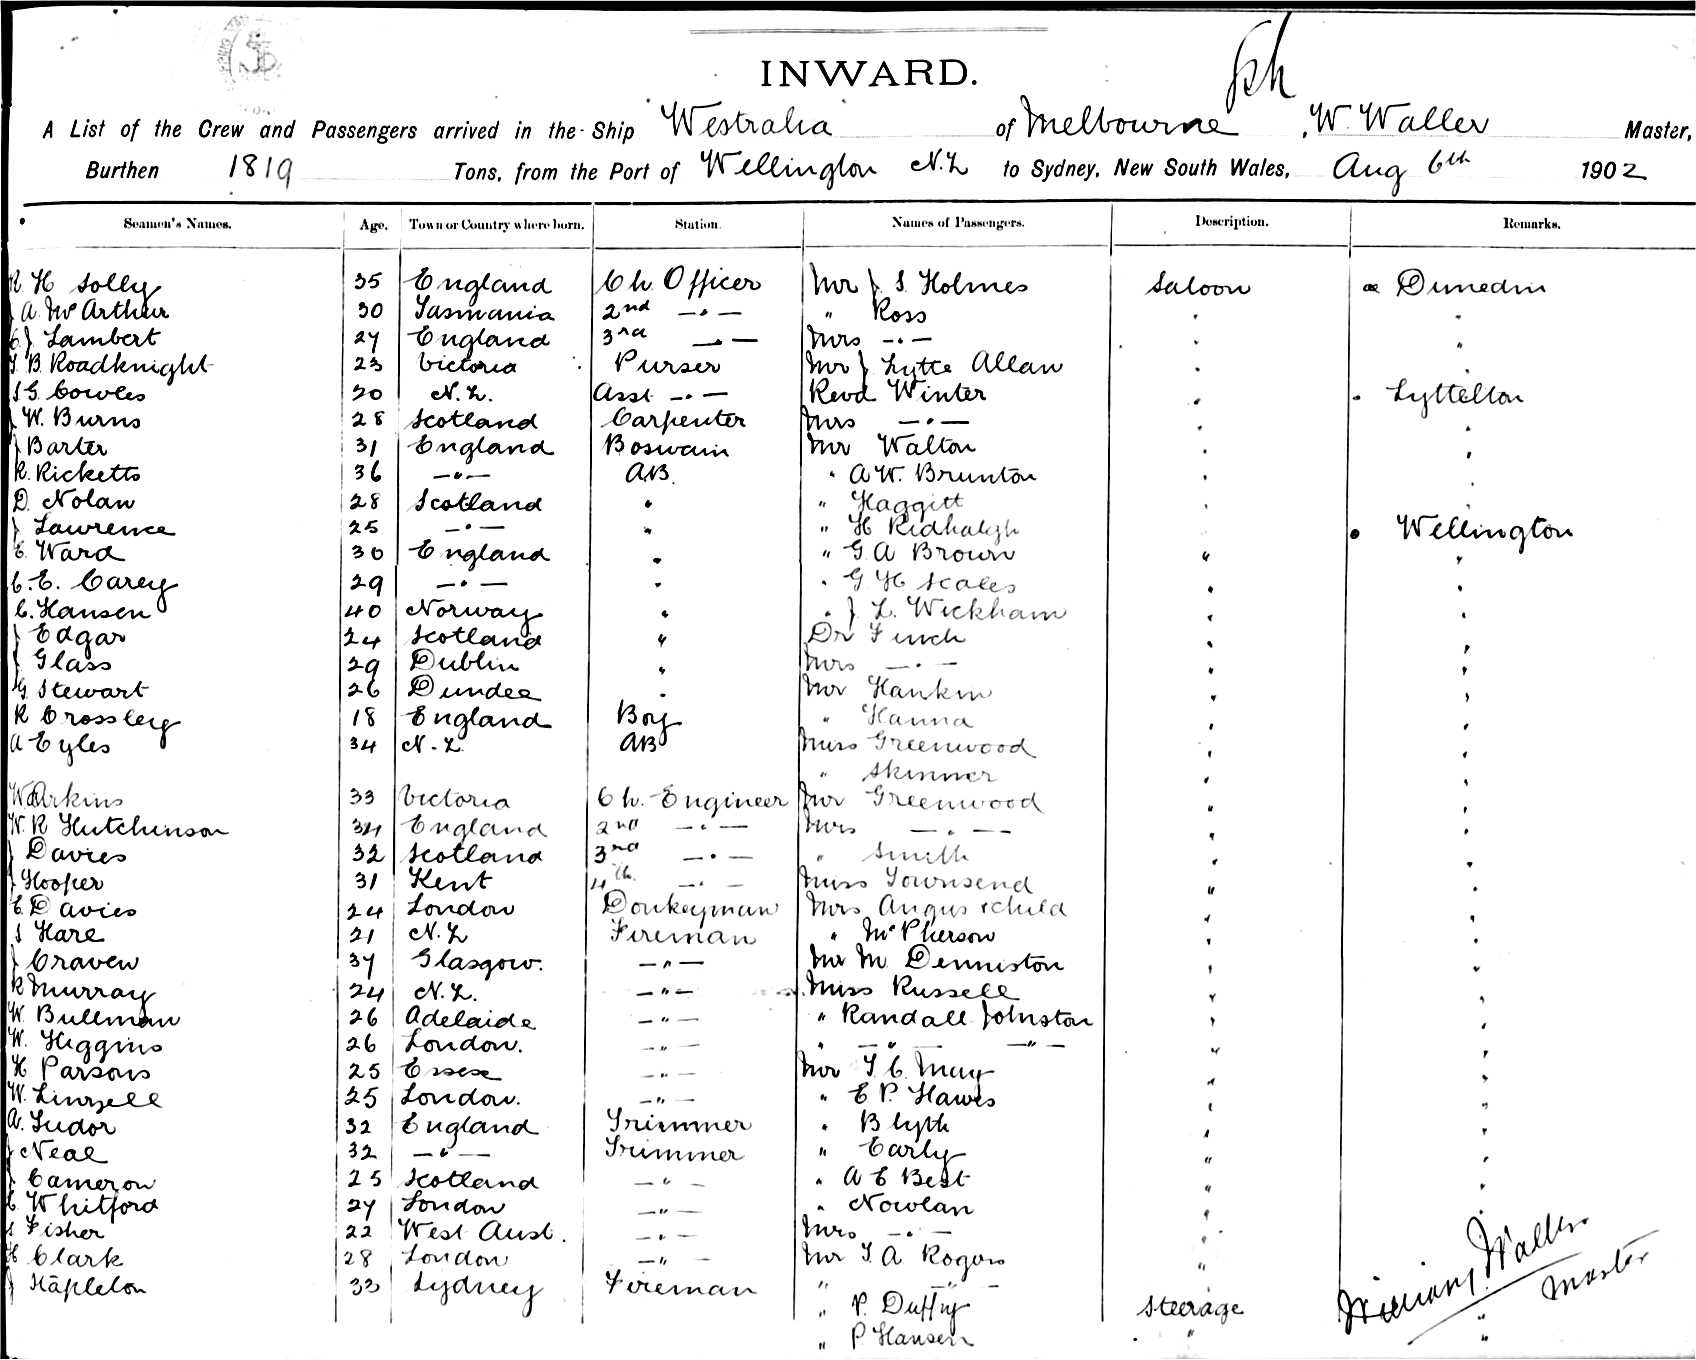 INWARD.
A List of the Crew and Passengers arrived in the Ship Westralia of Melbourne, W. Waller Master,
Burthen 1819 Tons, from the Port of Wellington N.Z to Sydney, New South Wales, Aug 6th 1902
Seamen's Names. Age. Town or Country where born. Station. Names of Passengers. Description. Remarks.
R. H Solly 35 England Ch. Officer Mr J S. Holmes Saloon Dunedin
A. McArthur 30 Tasmania 2nd —"— " Ross "
C J Lambert 27 England 3rd —"— Mrs —"— "
T. B. Roadknight 23 Victoria Purser Mr J Lytte Allan "
S G. Cowles 20 N.Z. Asst —"— Revd Winter " Lyttelton
J W. Burns 28 Scotland Carpenter Mrs —"— "
J Barter 31 England Boswain Mr Walton "
R. Ricketts 36 —"— AB. " A W. Brunton "
D. Nolan 28 Scotland " " Haggitt "
J Lawrence 25 —"— " " H Ridhalgh Wellington
E. Ward 30 England " " G A Brown " "
C. E. Carey 29 —"— " " G H Scales " "
C. Hansen 40 Norway " " J L. Wickham " "
J Edgar 24 Scotland " Dr Finch " "
J Glass 29 Dublin " Mrs —"— " "
G. Stewart 26 Dundee " Mr Hankin " "
R Crossley 18 England Boy " Hanna " "
A Eyles 34 N.Z. AB Miss Greenwood " "
" Skinner " "
W Arkins 33 Victoria Ch. Engineer Mr Greenwood " "
W. R Hutchinson 34 England 2nd —"— Mrs —"— " "
J Davies 32 Scotland 3rd —"— " Smith " "
J Hooper 31 Kent 4th —"— Miss Townsend " "
E. Davies 24 London Donkeyman Mrs Angus & child " "
S Hare 21 N.Z Fireman " McPherson " "
J Craven 37 Glasgow. —"— Mr M Denniston " "
R Murray 24 N.Z. —"— Miss Russell " "
W. Bullman 26 Adelaide —"— " Randall Johnston " "
W. Higgins 26 London. —"— " —"— —"— " "
H Parsons 25 Essex —"— Mr T. C. May " "
W. Linzell 25 London. —"— " E P. Hawes " "
A. Tudor 32 England Trimmer " Blyth " "
J Neal 32 —"— Trimmer " Early " "
J Cameron 25 Scotland —"— " A E Best " "
C Whitford 27 London —"— " Nowlan " "
S Fisher 22 West Aust. —"— Mrs —"—
H Clark 28 London —"— Mr T. A Rogers "
J Stapleton 33 Sydney Fireman " —"— "
" P. Duffy Steerage "
" P Hansen " "
William Waller
Master